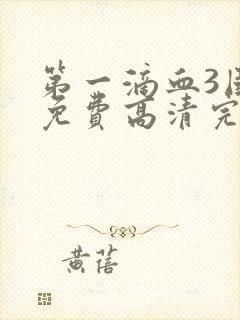 第一滴血3
免费高清完
黄蓓